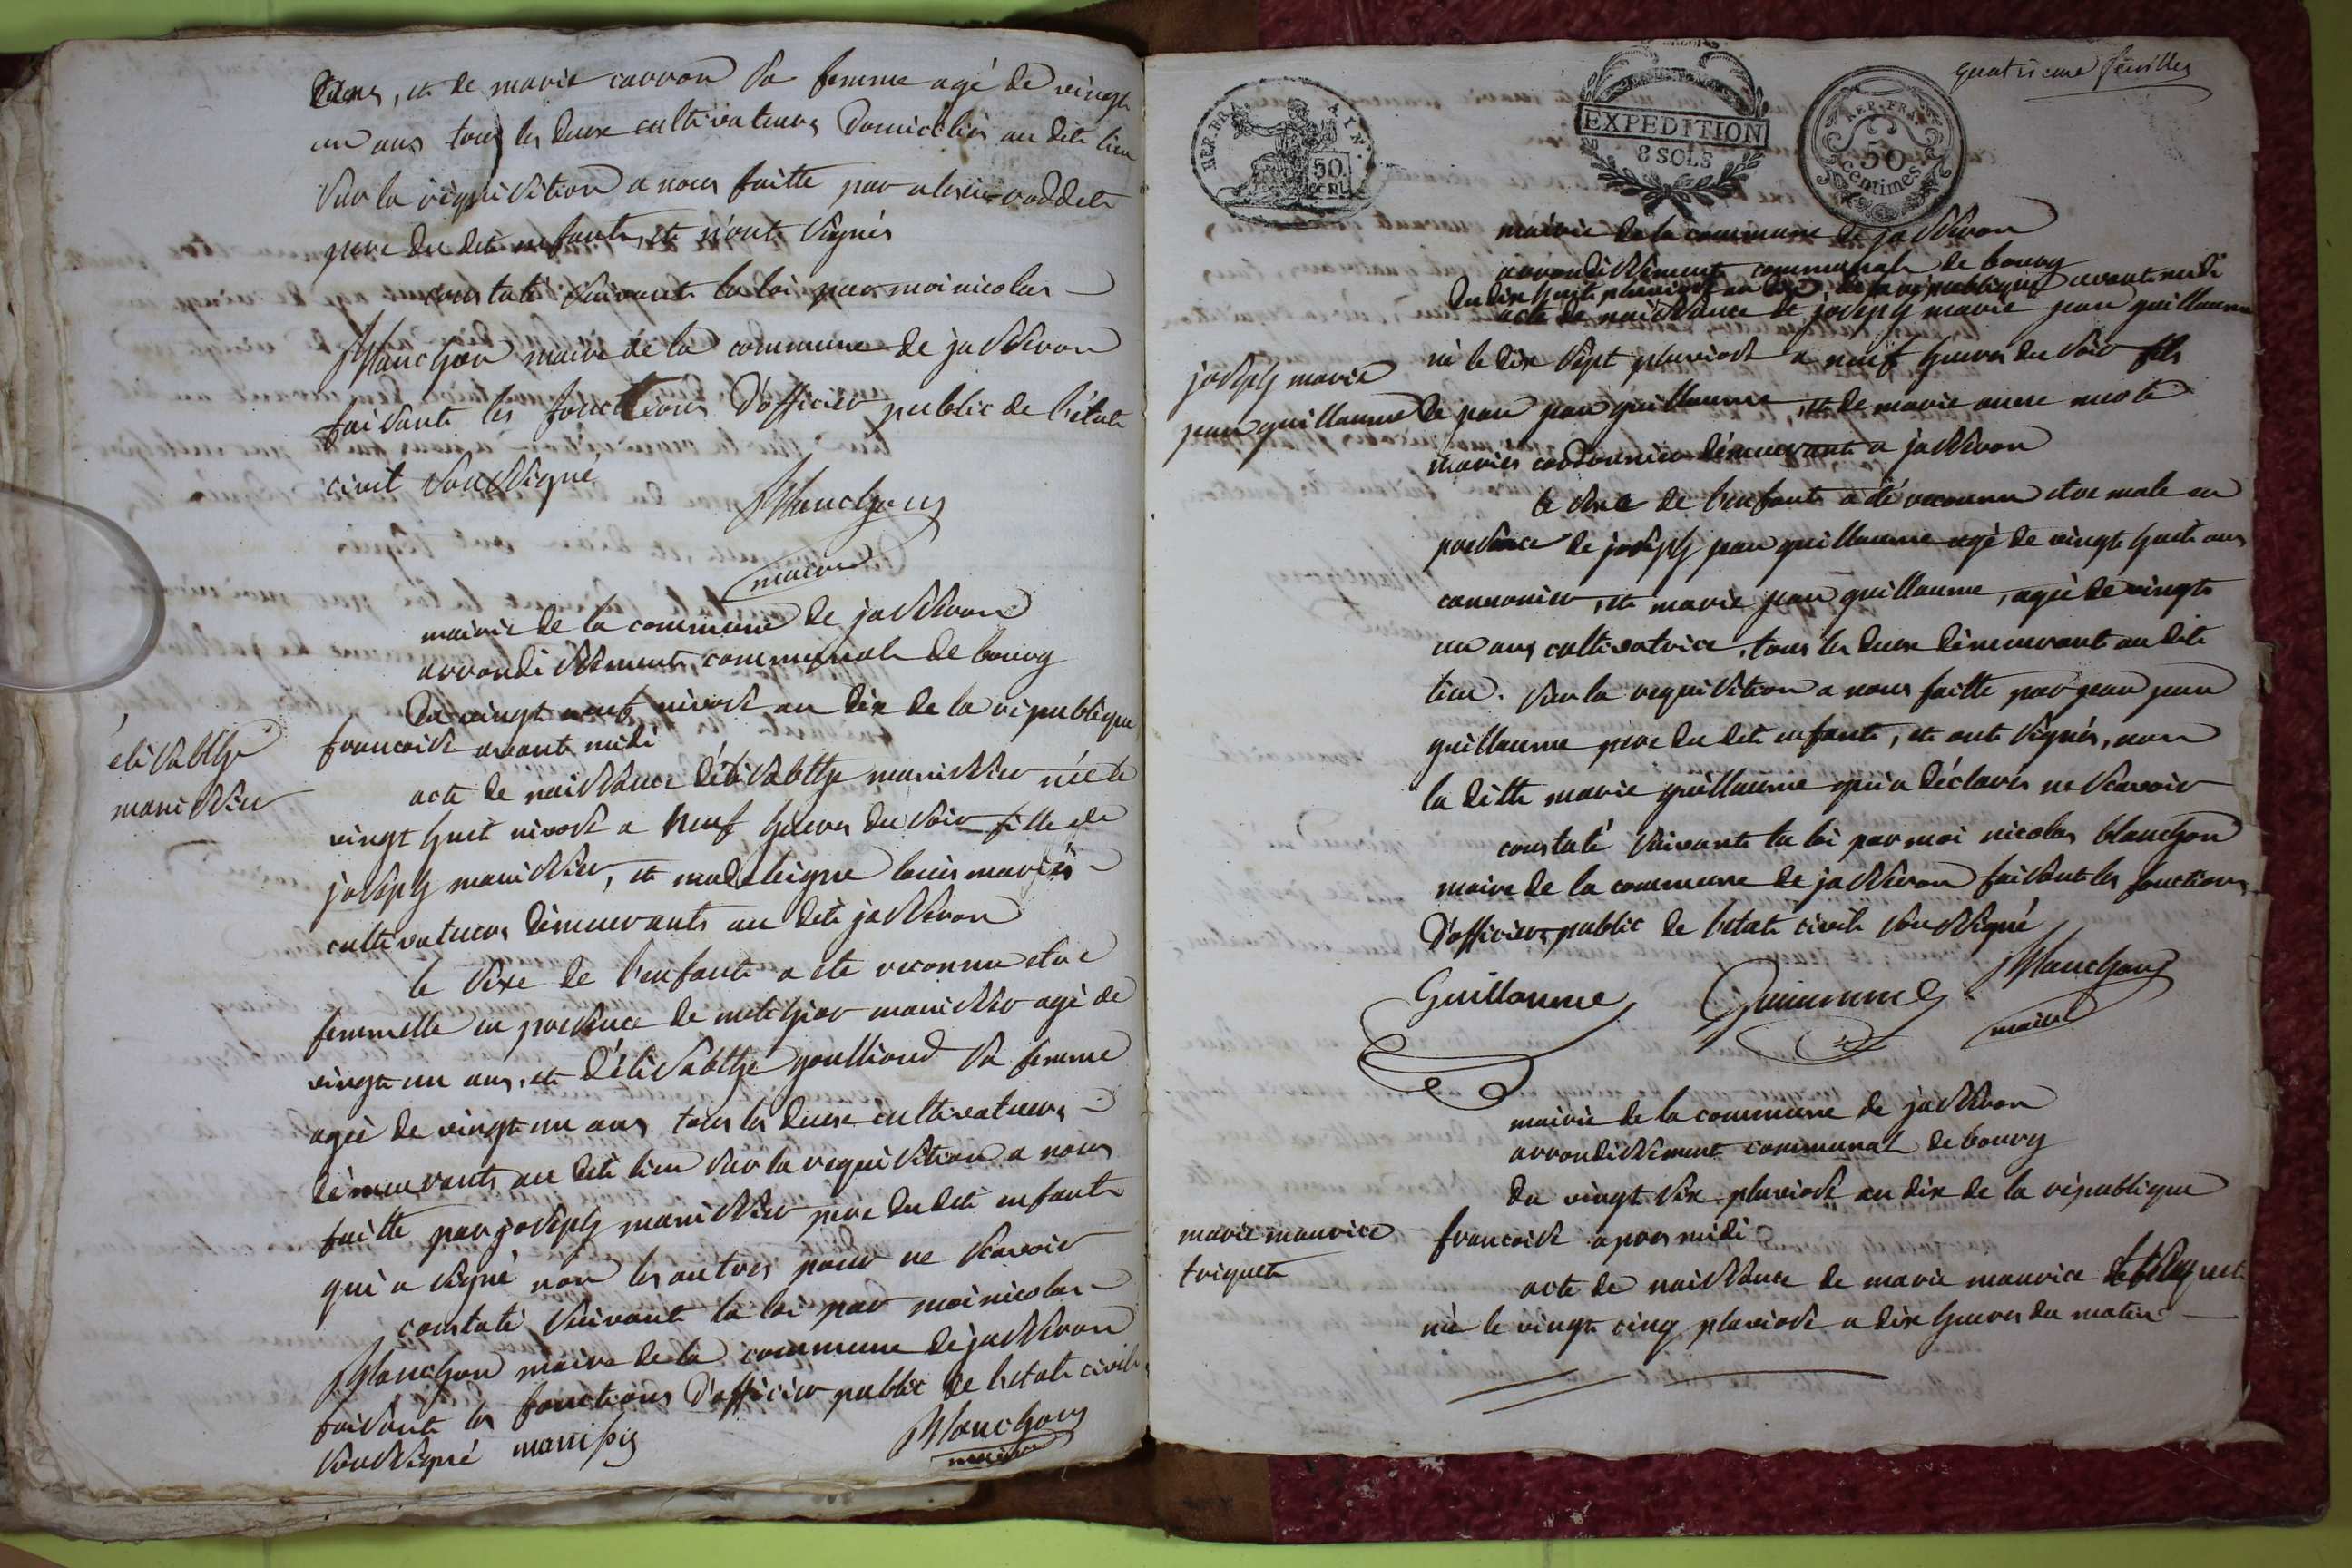 et de marie carron sa femme agé de vingt
un ans tous les deux cultivateurs domiciliés au dit lieu
sur la réquisition a nous faitte par
pere du dit enfant, et n'ont signés
constaté suivant la loi par moi nicolas
Blanchon maire de la commune de jasseron
faisant les fonctions d'officier public de l'état
civil soussigné
Blanchon
maire
mairie de la commune de jasseron
arrondissement communal de bourg
Du vingt neuf nivose an dix de la république
francoise avant midi
élisabethe
manissier
acte de naissance d'élisabethe manissier née le
vingt huit nivose a neuf heures du soir fille de
joseph manissier, et madeleigne louis mariés
cultivateurs démeurants au dit jasseron
le sexe de l'enfant a été reconnu etre
femmelle en presence de melchior manissier agé de
vingt un ans, et d'élisabethe goulliond sa femme
agée de vingt un ans tous les deux cultivateurs
démeurants au dit lieu sur la requisition a nous
faitte par joseph manissier pere du dit enfant
qui a signé non les autres pour ne scavoir
constaté suivant la loi par moi nicolas
Blanchon maire de la commune de jasseron
faisant les fonctions d'officier public de l'etat civil
soussigné manissier
Blanchon
maire
quatrieme feuilles
REP. FRA. AIN.
50 CENT.
EXPEDITION
8 SOLS
REP. FRA.
50
centimes
mairie de la commune de jasseron
arrondissement communal de bourg
Du dix huit pluviose an dix de la république avant midi
acte de naissance de joseph marie jean guillaume
joseph marie
jean guillaume
né le dix sept pluviose a neuf heures du soir fils
de jean jean guillaume, et de marie anne
mariés cordonnier démeurant a jasseron
le sexe de l'enfant a été reconnu etre male en
presence de joseph jean guillaume agé de vingt huit ans
cannonier, et marie jean guillaume, agée de vingt
un ans cultivatrice, tous les deux démeurant au dit
lieu. sur la requisition a nous faitte par jean jean
guillaume pere du dit enfant, et ont signés, non
la ditte marie guillaume qui a déclarés ne scavoir
constaté suivant la loi par moi nicolas blanchon
maire de la commune de jasseron faisant les fonctions
d'officier public de l'etat civil soussigné
Guillaume Guillaume Blanchon
maire
mairie de la commune de jasseron
arrondissement communal de bourg
Du vingt six pluviose an dix de la république
francoise apres midi
marie maurice
triquet
acte de naissance de marie maurice
né le vingt cinq pluviose a dix heures du matin